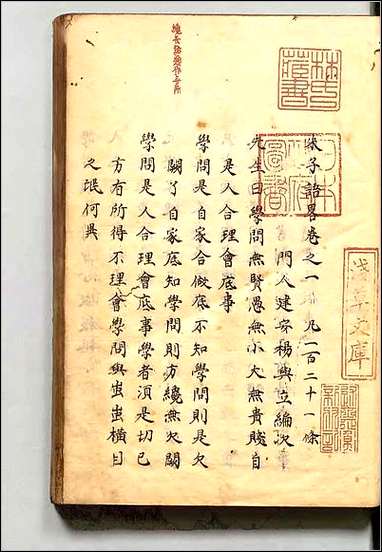 朱子語畧卷之一 凡一百二十一條
門人建安楊與立編次
先生曰學問無賢愚無小大無貴賤自
是人合理會底事
學問是自家合做底不知學問則是欠
闕了自家底知學問則方纔無欠闕
學問是人合理會底事學者須是切己
方有所得不理會學問與蚩蚩橫目
之氓何異
林氏藏書
日本政府圖書
淺草文庫